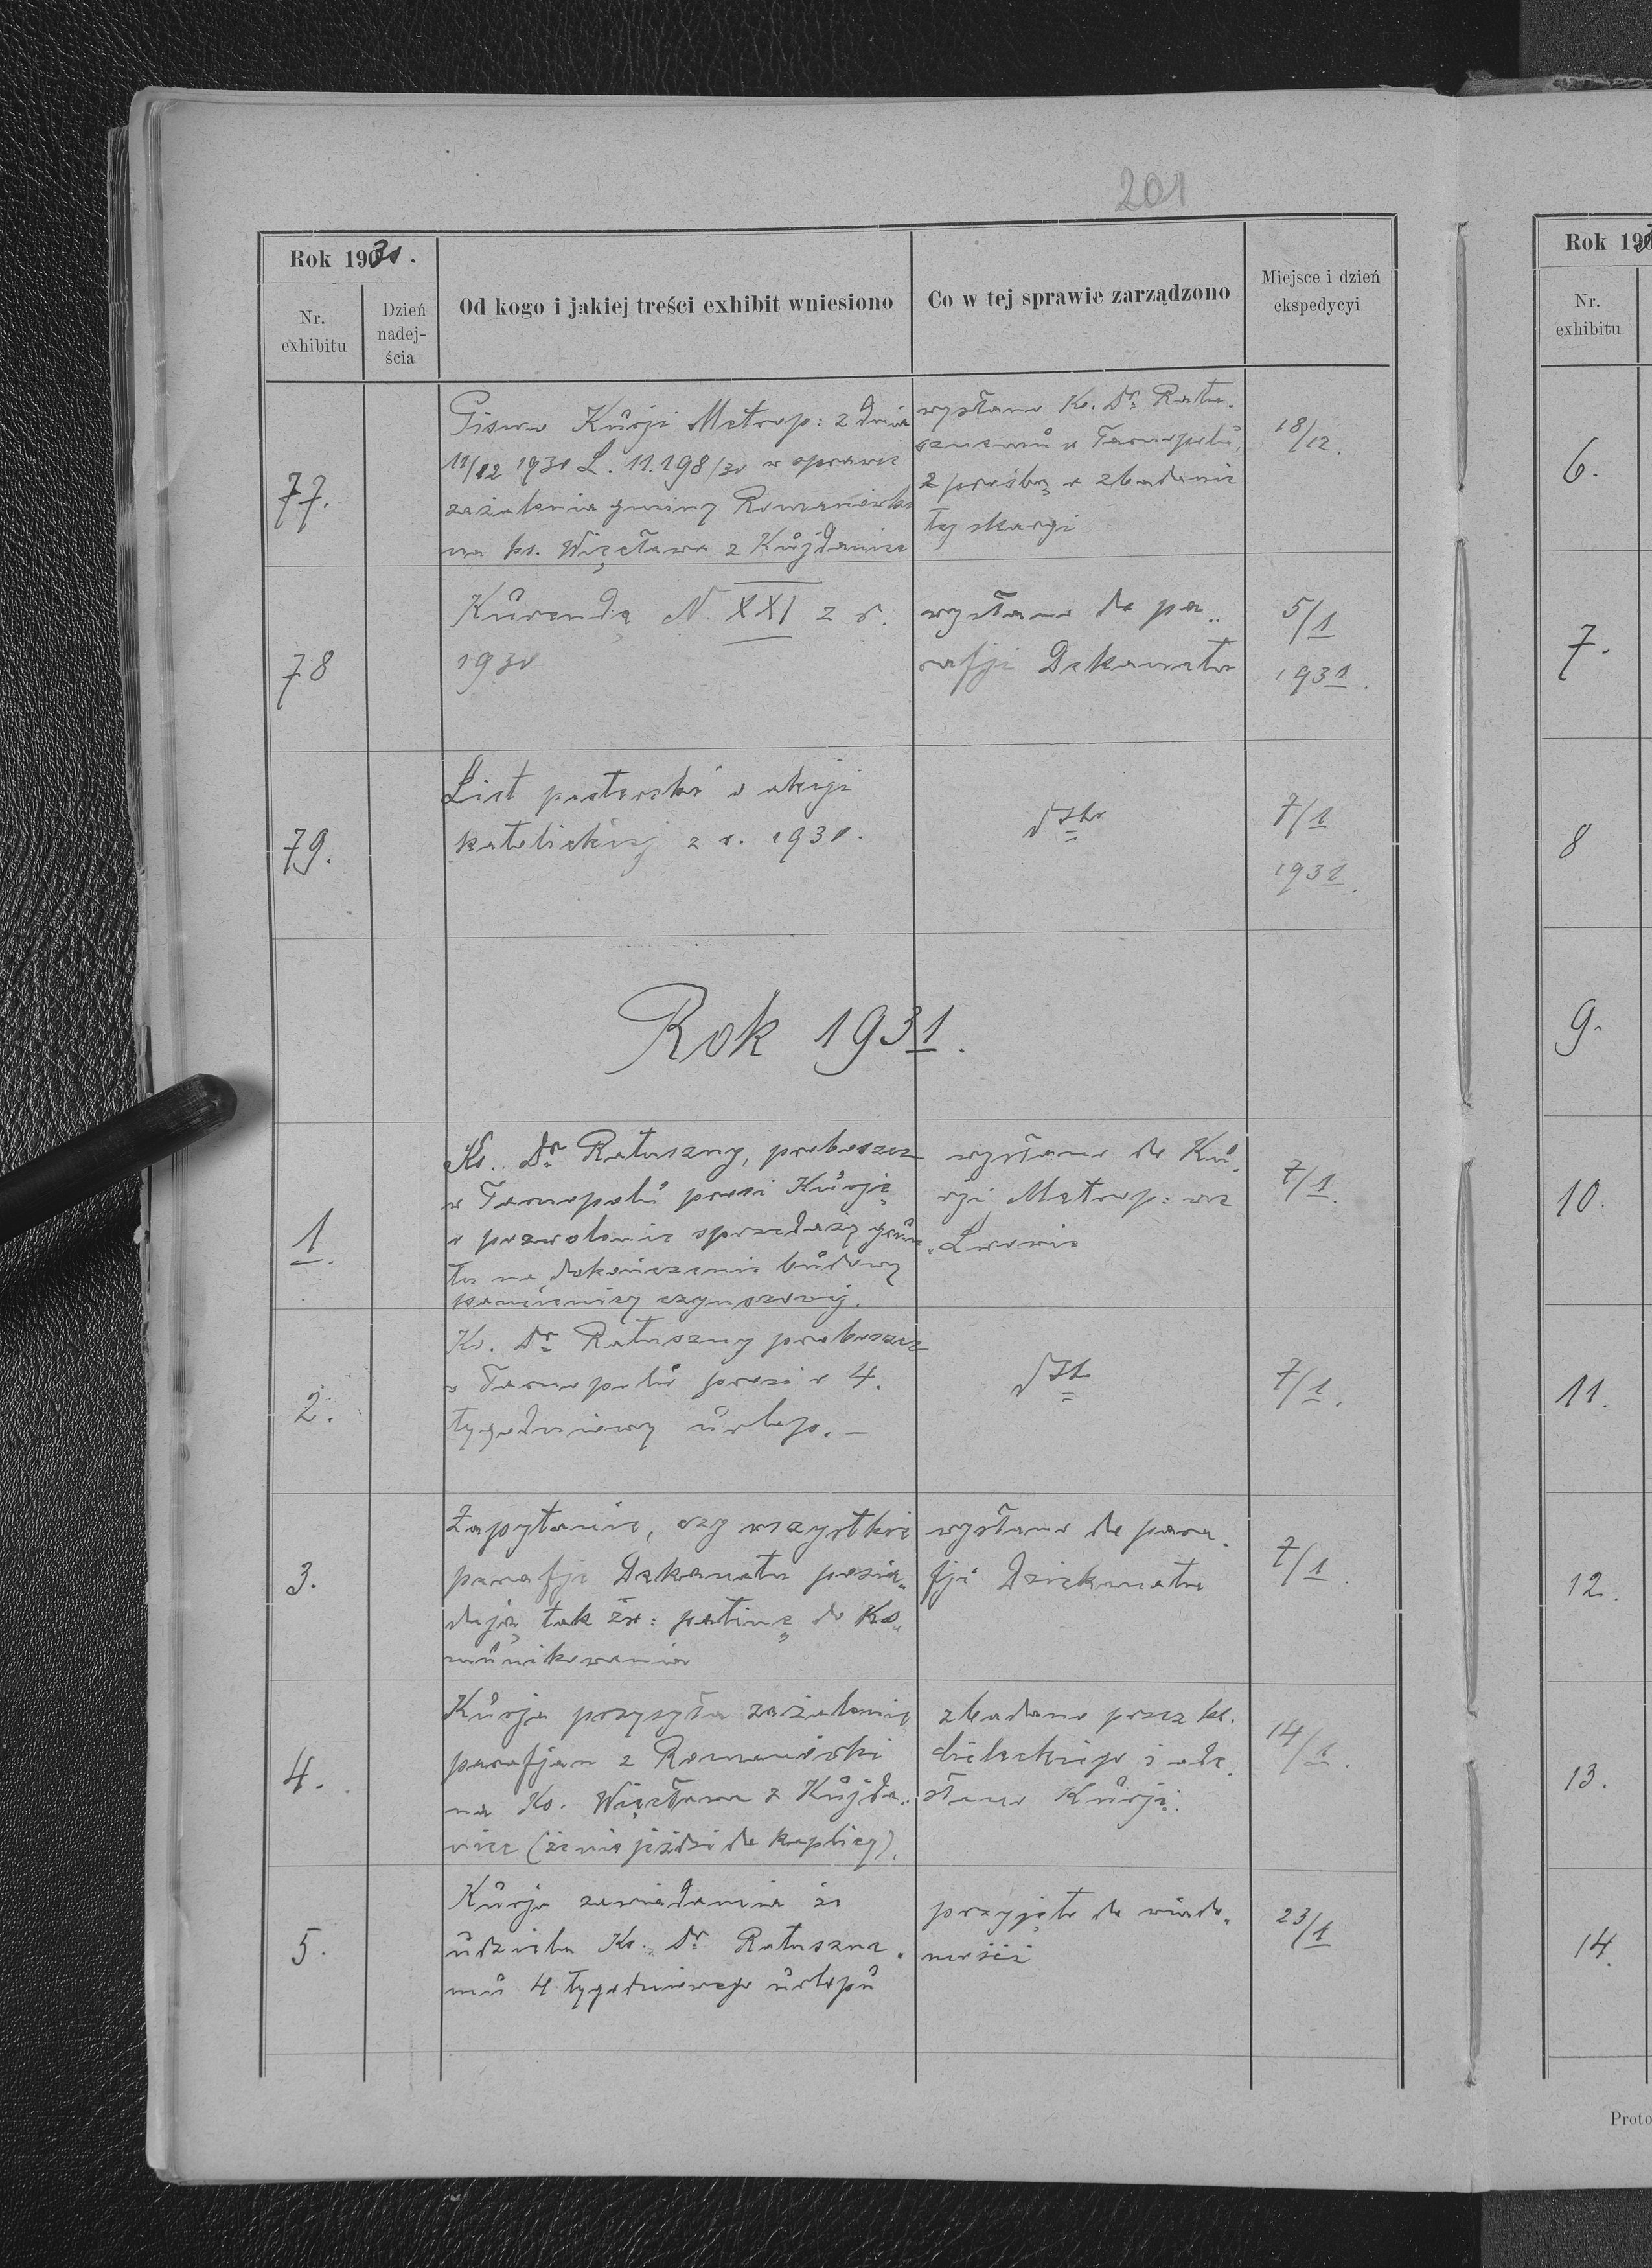 201
Rok 1930.
Nr. exhibitu
Dzień nadejścia
Od kogo i jakiej treści exhibit wniesiono
Co w tej sprawie zarządzono
Miejsce i dzień ekspedycyi
77.
Pismo Kurji Metrop: z dnia
11/12 1930 L. 11.198/30 w sprawie
zażalenia gminy Romanówka
na ks. Więcława z Kujdaniec
wysłano Ks. Dr. Ratu-
sznemu w Tarnopolu,
z prośbą o zbadanie
tej skargi
18/12.
78
Kurendę N. XXI z r.
1930
wysłano do pa-
rafji Dekanatu
5/1
1931.
79.
List pasterski o akcji
katolickiej z r. 1930.
dto
7/1
1931.
Rok 1931.
1.
Ks. Dr Ratuszny, proboszcz
w Tarnopolu prosi Kurję
o pozwolenie sprzedaży grun-
tu na dokończenie budowy
kamienicy czynszowej.
wysłano do Ku-
rji Metrop: we
Lwowie
7/1.
2.
Ks. Dr Ratuszny proboszcz
w Tarnopolu prosi o 4.
tygodniowy urlop. –
dto
7/1.
3.
Zapytanie, czy wszystkie
parafje Dekanatu posia-
dają tak zw: patinę do Ko-
munikowania
wysłano do para-
fji Dziekanatu
7/1.
4.
Kurja przysyła zażalenie
parafjan z Romanówki
na Ks. Więcława z Kujda-
niec (że nie jeździ do kaplicy).
zbadano przez ks.
i ode-
słano Kurji.
14/1.
5.
Kurja zawiadamia że
udziela Ks. Dr Ratuszne-
mu 4 tygodniowego urlopu
przyjęto do wiado-
mości
23/1
Rok 19
Nr. exhibitu
6.
7.
8
9.
10.
11.
12.
13.
14.
Proto